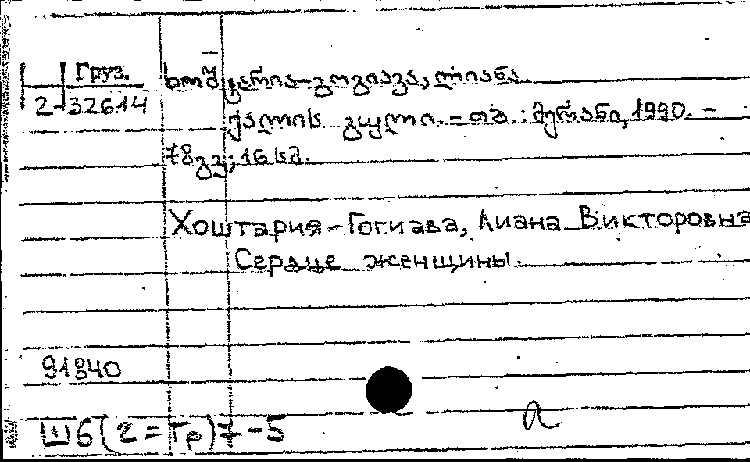 Груз.
2-32614
ხოშტარია-გოგიავა, ლიანა.
ქალის გული. – თბ. : მერანი, 1990. –
78გვ; 16 სმ.
Хоштария-Гогиава, Лиана Викторовна
Сердце женщины.
91840
Ш6(2=Гр)7-5
a